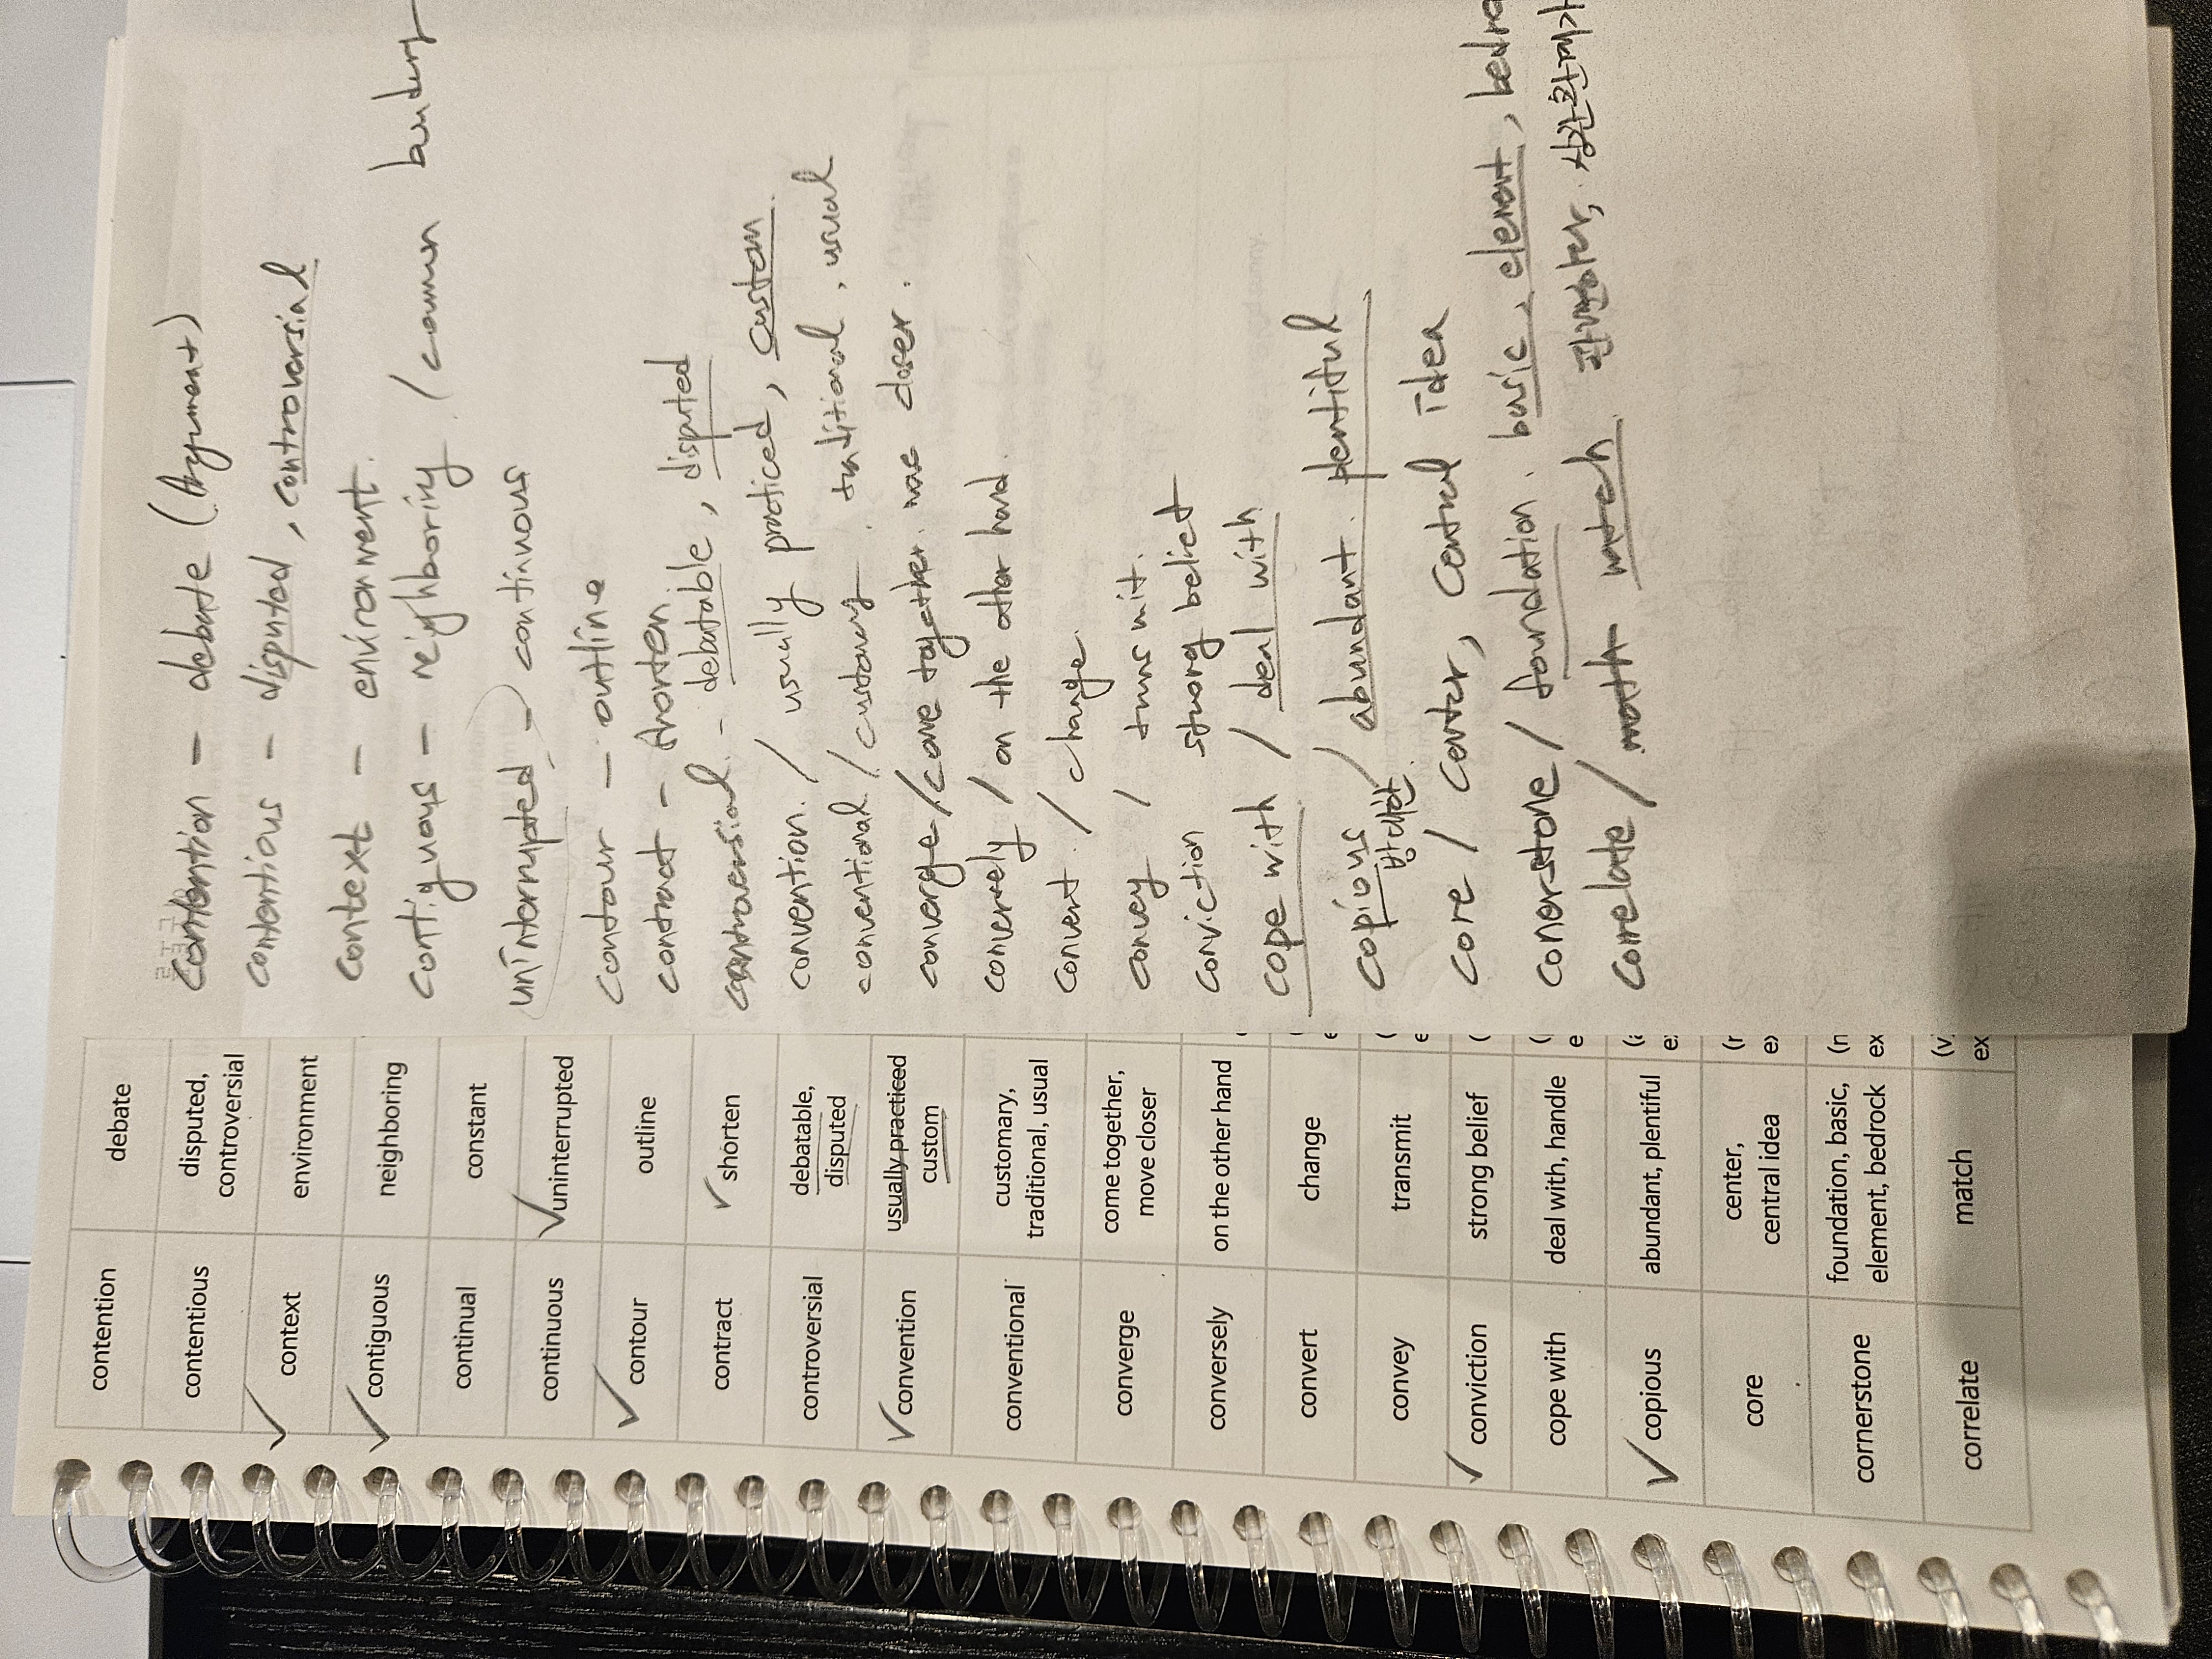 contention debate
contentious disputed,
controversial
context environment
contiguous neighboring
continual constant
continuous uninterrupted
contour outline
contract shorten
controversial debatable,
disputed
convention usually practiced
custom
conventional customary,
traditional, usual
converge come together,
move closer
conversely on the other hand
convert change
convey transmit
conviction strong belief
cope with deal with, handle
copious abundant, plentiful
core center,
central idea
cornerstone foundation, basic,
element, bedrock
correlate match
contention - debate (Argument)
contentious - disputed, controversial
context - environment.
contiguous - neighboring. (common
uninterrupted - continuous
contour - outline
contract - shorten.
controversial. - debatable, disputed
convention. / usually practiced, custom
conventional / customary. traditional, usual
converge / come together. move closer.
conversely / on the other hand.
convert. / change.
convey / transmit.
conviction strong belief
cope with / deal with
copious / abundant. plentiful
core / center, central idea
conerstone / foundation. basic, element,
correlate / match